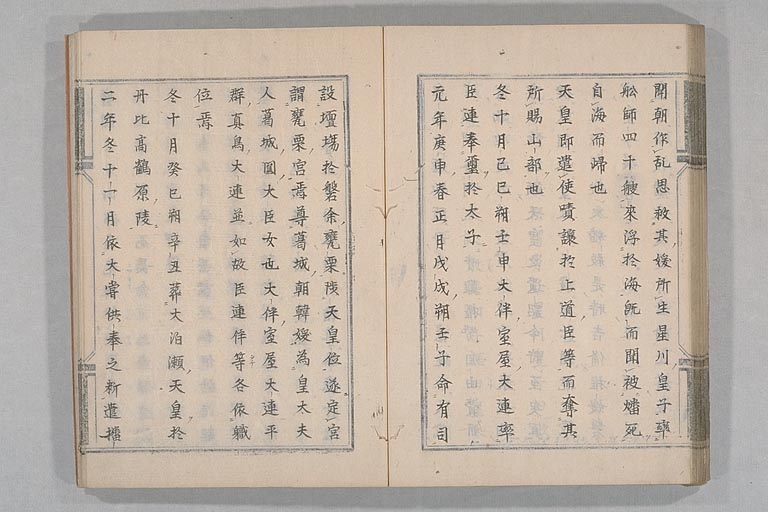 聞朝作乱思救其媛所生星川皇子率
舩師四十艘来浮於海既而聞被燔死
自海而帰也
天皇即遣使責譲於上道臣等而奪其
所賜山部也
冬十月己巳朔壬申大伴室屋大連率
臣連奉璽於太子
元年庚申春正月戊戌朔壬子命有司
設壇場於磐余甕栗陟天皇位遂定宮
謂甕栗宮焉尊葛城朝韓媛為皇太夫
人葛城圓大臣女也大伴室屋大連平
群真鳥大連並如故臣連伴等各依軄
位焉
冬十月癸巳朔辛丑葬大泊瀬天皇於
丹比高鷲原陵
二年冬十一月依大嘗供奉之新遣播